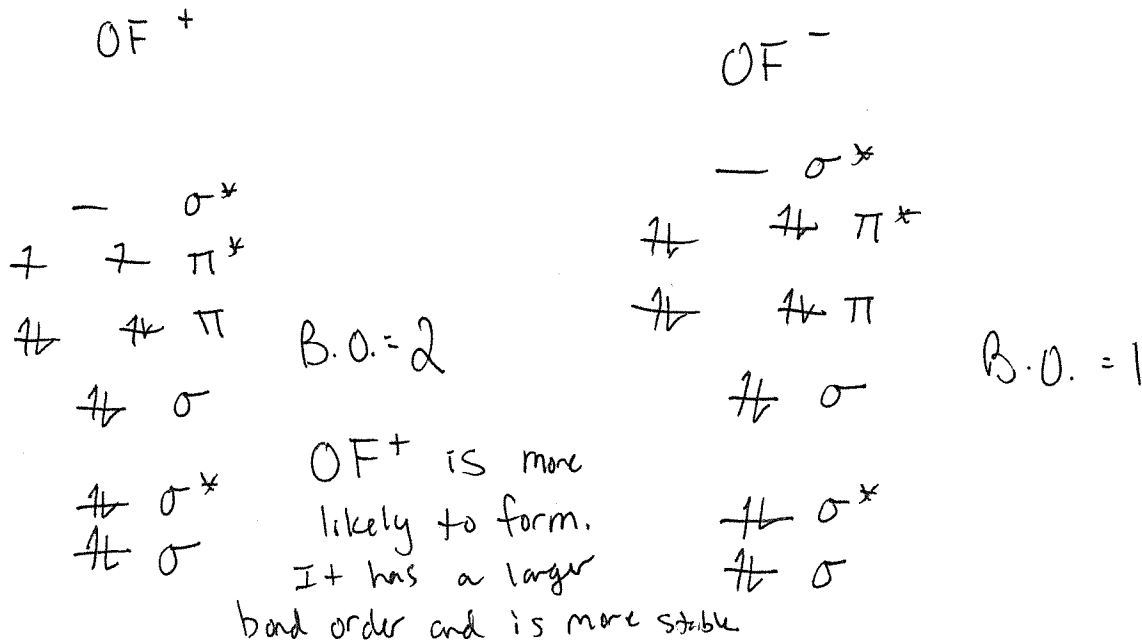 OF +
OF -
σ*
π*
π
σ
σ*
σ
B.O.=2
OF+ is more
likely to form.
It has a larger
bond order and is more stable
σ*
π*
π
σ
σ*
σ
B.O. = 1